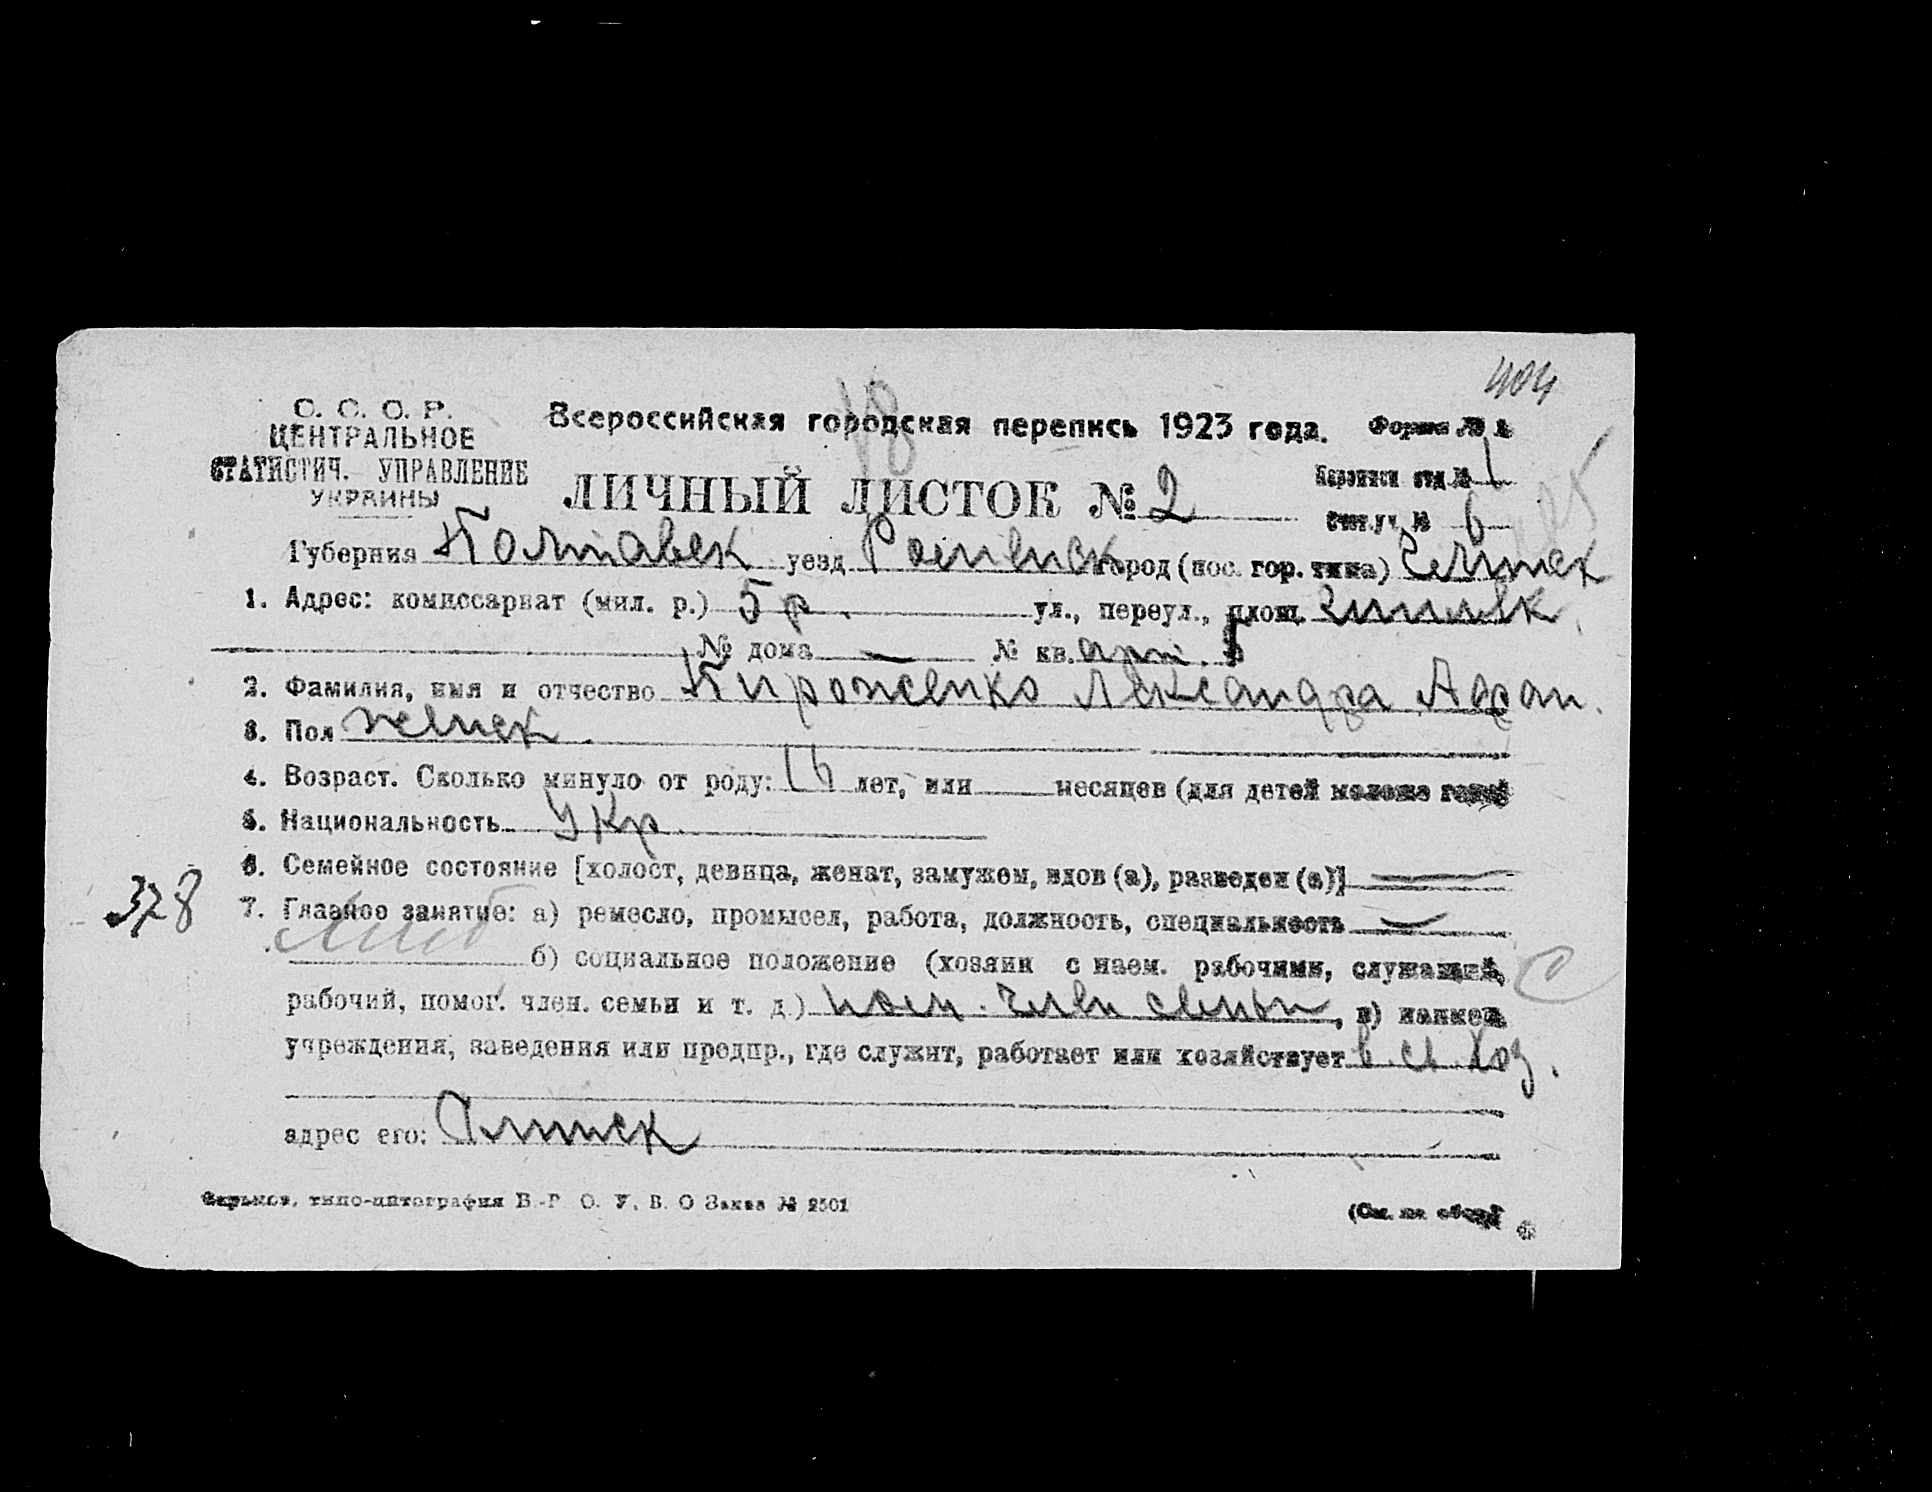 404
С. С. О. Р.
ЦЕНТРАЛЬНОЕ
СТАТИСТИЧ. УПРАВЛЕНИЕ
УКРАИНЫ
Всероссийская городская перепись 1923 года.
Форма № 
18
ЛИЧНЫЙ ЛИСТОК № 2
отд. № 1
Счет. уч. № 6
Губерния Полтавск уезд Роменск город (пос. гор. типа)
1. Адрес: комиссариат (мил. р.) 5 р. ул., переул., площ.
№ дома — № кв.
2. Фамилия, имя и отчество Пироженко Александра
3. Пол женск.
4. Возраст. Сколько минуло от роду: 16 лет, или месяцев (для детей моложе года)
5. Национальность Укр.
6. Семейное состояние [холост, девица, женат, замужем, вдов (а), разведен (а)] —
378
7. Главное занятие: а) ремесло, промысел, работа, должность, специальность —
б) социальное положение (хозяин с наем. рабочими, служащий,
С
рабочий, помог. член. семьи и т. д.) пом. член семьи, в) назв
учреждения, заведения или предпр., где служит, работает или хозяйствует в с. хоз.
адрес его:
Харьков, типо-литография В.-Р. О. У. В. О Заказ № 2501
(См. на обор